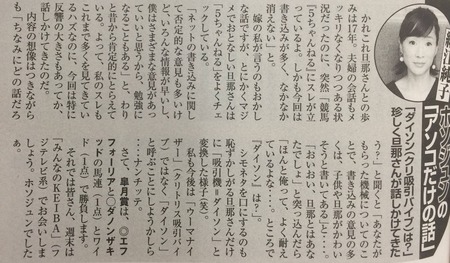 江純子
ホソジュンの
「アソコだけの話」
「ダイソン(クリ吸引バイブ)は?」
珍しく旦那さんが話しかけてきた
かれこれ旦那さんとの歩
みは17年。夫婦の会話もメ
ッキリなくなりつつある状
況だったのに、突然「競馬
『5ちゃんねる』にスレが立
っているよ。しかも今回は
書き込みが多く、なかなか
消えない」と。
嫁の私が言うのもおかし
な話ですが、とにかくマジ
メでおとしい旦那さんが
「5ちゃんねる」をよくチェ
ックしている。
「ネットの書き込みに関し
て否定的な意見も多いけ
ど、いろんな情報が早いし、
僕はさまざまな意見があっ
ていいと思うから、勉強に
なることもある」と、わり
と昔から肯定的にとらえて
いる。そして、私のスレも
これまで多くを見てきてい
るハズなのに、今回は特に
反響の大きさもあってか、
話しかけてきたのだ。
内容の想像はつきながら
も「ちなみにどの話だろ
う?」と聞くと、「あなたが
もらった機械についてのこ
とで、書き込みの意見の多
くは、子供や旦那がかわい
そうと書いてある」と…。
「おいおい、旦那とはあな
たでしょ」と突っ込んだら
「ほんと俺って、よく耐え
ているよな…。ところで
『ダイソン』は?」
シモネタを口にするのも
恥ずかしがる旦那さんだけ
に「吸引機=ダイソン」と
変換した様子(笑)。
私も今後は「ウーマナイ
ザー」(クリトリス吸引バイ
ブ)ではなく「ダイソン」
と呼ぶことにしようかしら
…ナンチッテ。
さて、皐月賞は、◎エフ
フォーリア→○ダノンザキ
ッドの馬連(1点)とワイ
ド(1点)で勝負します。
それでは皆さん、週末は
「みんなのKEIBA」(フ
ジテレビ系)でお会いしま
しょう。ホソジュンでした
ぁ。